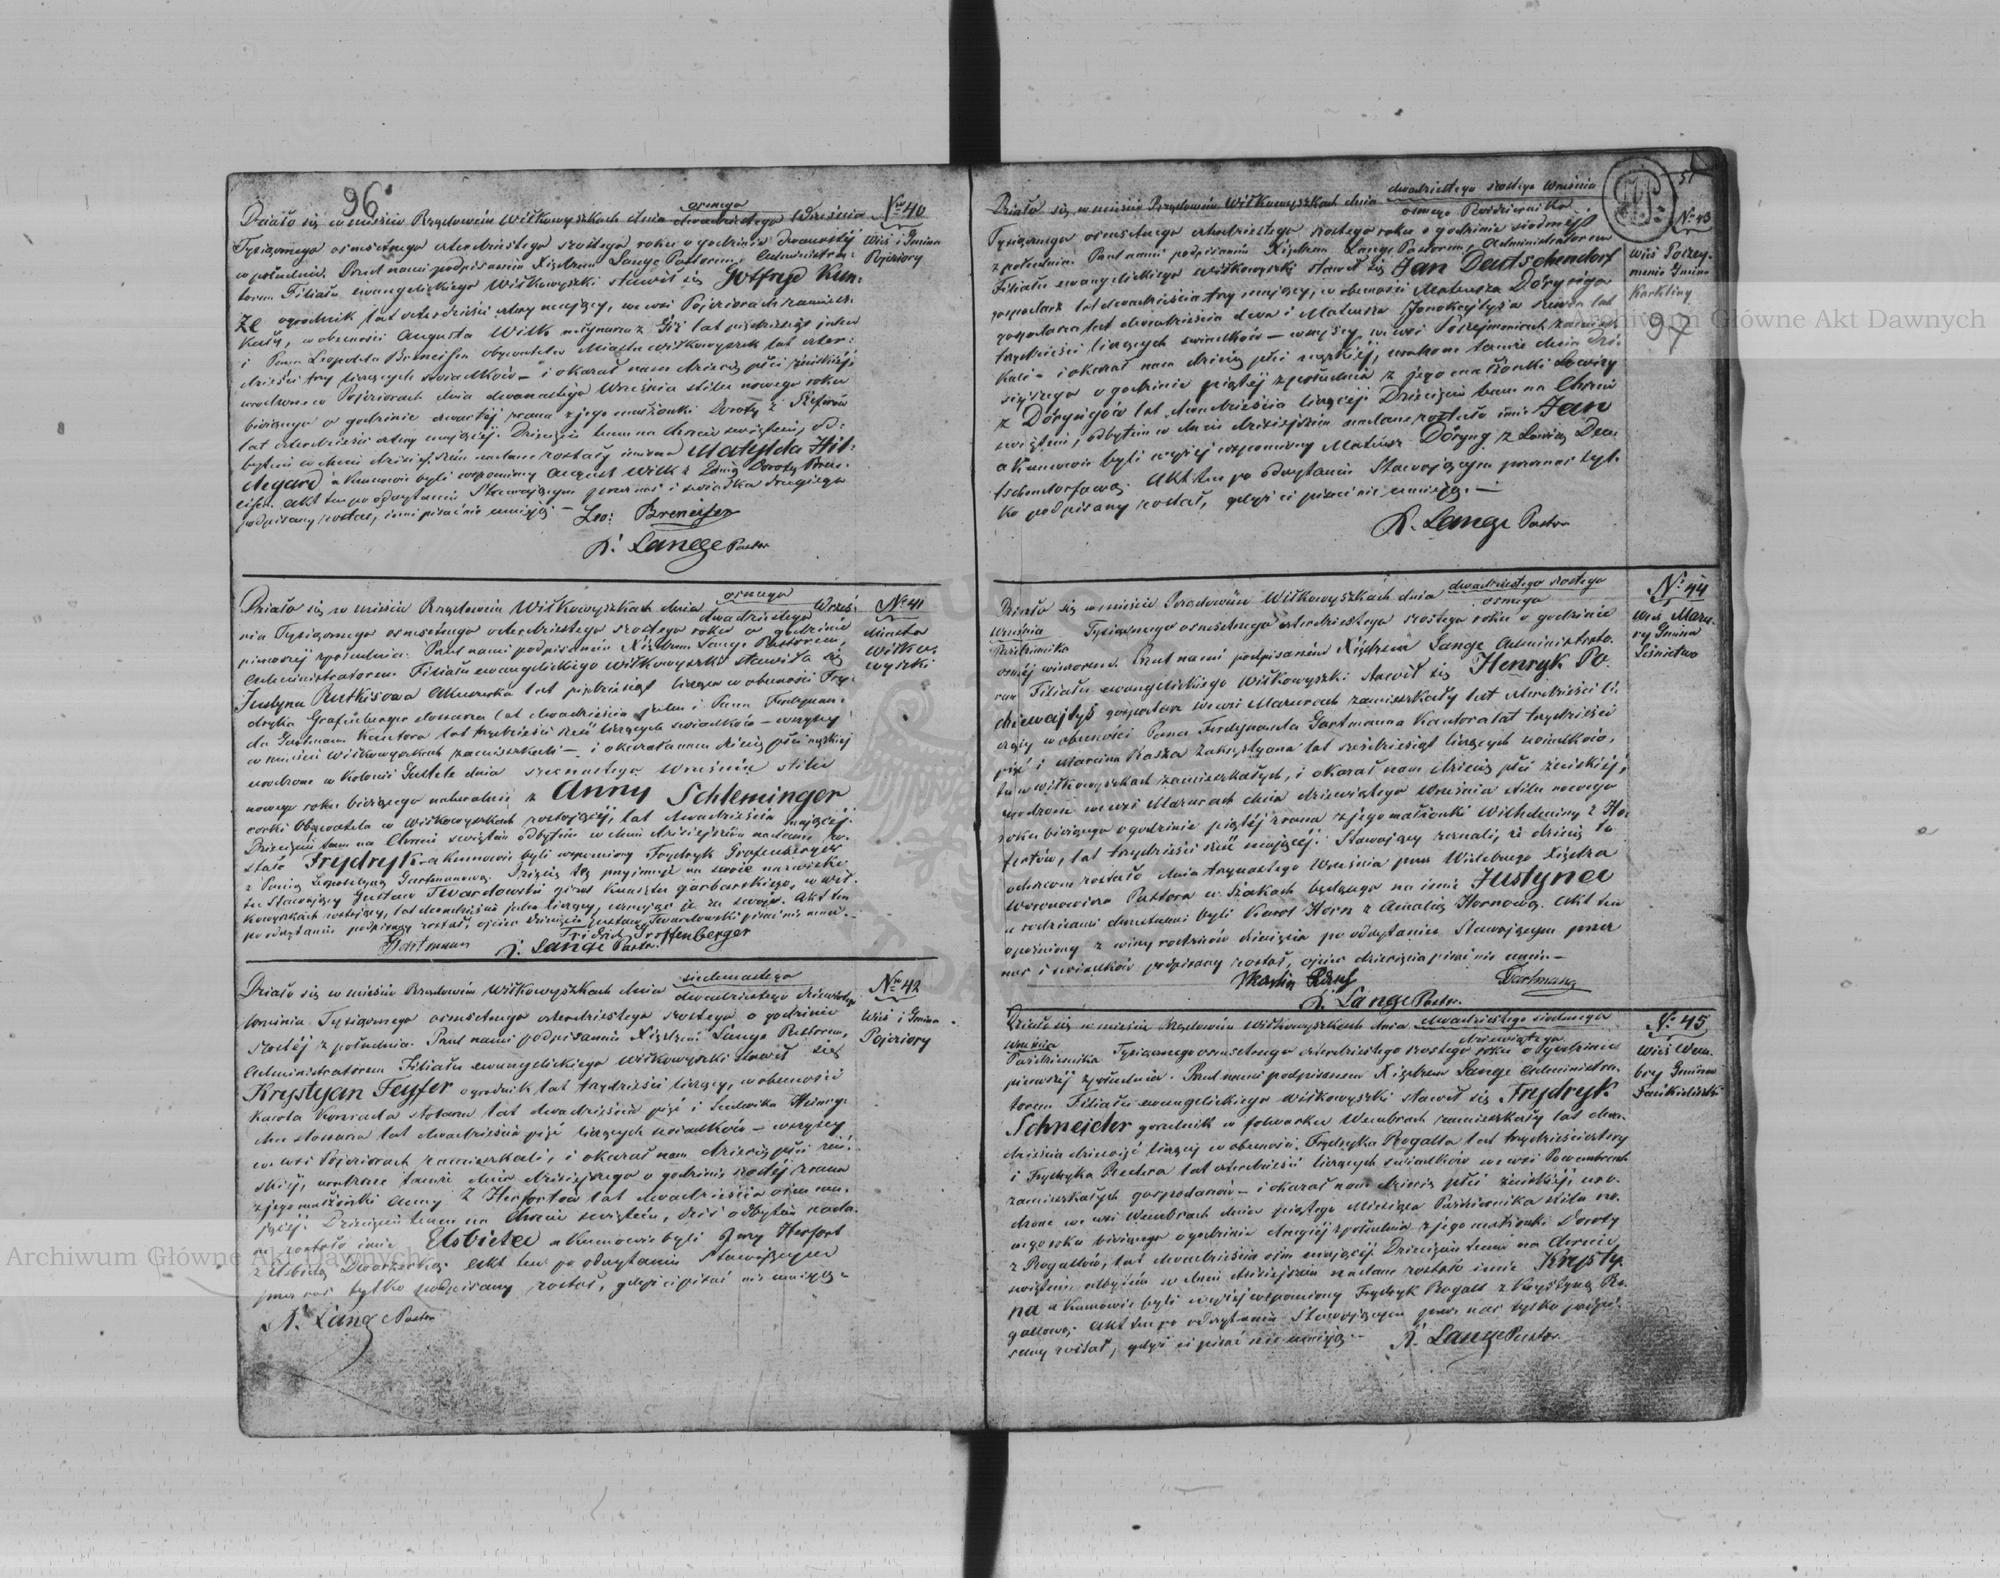 96
Działo się w mieście Rządowém Wiłkowyszkach dnia ósmego/dwudziestego Września
Nro 40
Wieś i Gmina
Pojeziory
Tysiącznego ośmsetnego czterdziestego szóstego roku o godzinie dwunastéj
w południe. Przed nami podpisanym Xiędzem Lange Pastorem, Administra-
torem Filiału ewangelickiego Wiłkowyszki stawił się Gotfryd Kun-
ze ogrodnik lat czterdzieści cztery mający, we wsi Pojeziorach zamiesz-
kały, w obecności Augusta Wilk młynarza lat pięćdziesiąt jeden
i Pana Leopolda Breneisen obywatela Miasta Wiłkowyszek lat czter-
dzieści trzy liczących świadków – i okazał nam dziecię płci żeńskiéj,
urodzone w Pojeziorach dnia dwunastego Września stilu nowego roku
bieżącego o godzinie czwartéj zrana z jego małżonki Doroty z
lat czterdzieści cztery mającéj. Dziecięciu temu na Chrzcie świętym, od-
bytym w dniu dzisiejszém nadane zostały imiona Matylda Hil-
degard a Kumowie byli wspomniony August Wilk z Panią Dorotą Bren-
eisen. Akt ten po odczytaniu Stawającym przez nas i świadka drugiego
podpisany został, inni pisać nie umieją. –
Leo: Breneisen
A. Lange Pastor
Działo się w mieście Rządowém Wiłkowyszkach dnia ósmego/dwudziestego Wrześ-
Nro 41
Miasto
Wiłko-
wyszki
nia Tysiącznego ośmsetnego czterdziestego szóstego roku o godzinie
pierwszéj z południa. Przed nami podpisanym Xiędzem Lange Pastorem,
Administratorem Filiału ewangelickiego Wiłkowyszki stawiła się
Justyna Rutkisowa Akuszerka lat pięćdziesiąt licząca w obecności Fry-
dryka Grafenberger stolarza lat dwadzieścia jeden i Pana Ferdynan-
da Gartmann Kantora lat trzydzieści sześć liczących świadków – wszyscy
w mieście Wiłkowyszkach zamieszkali – i okazała nam dziecię płci męzkiéj
urodzone w Kolonii dnia szesnastego Września stilu
nowego roku bieżącego naturalnie z Anny Schleminger
córki Obywatela w Wiłkowyszkach zostającéj, lat dwadzieścia mającéj.
Dziecięciu temu na Chrzcie świętym odbytym w dniu dzisiejszém nadane zo-
stało Frydryk – a Kumowie byli wspomniony Frydryk Grafenberger
z Panią Leopoldyną Gartmannową. Dziecię to przyjmuje na swoie nazwisko
tu Stawający Gustaw Twardowski czeladnik Kunsztu garbarskiego, w Wił-
kowyszkach zostający, lat dwadzieścia jeden liczący, uznając je za swoje. Akt ten
po odczytaniu podpisany został, ojciec dziecięcia Gustaw Twardowski pisać nie umie. –
Gartmann
Fridrich Groffenberger
A. Lange Pastor.
Działo się w mieście Rządowém Wiłkowyszkach dnia siedmnastego/dwudziestego dziewiątego
Nro 42
Wieś i Gmina
Pojeziory
Września Tysiącznego ośmsetnego czterdziestego szóstego o godzinie
szóstéj z południa. Przed nami podpisanym Xiędzem Lange Pastorem,
Administratorem Filiału ewangelickiego Wiłkowyszki stawił się
Krystyan Feyfer ogrodnik lat trzydzieści liczący, w obecności
Karola Konrada stolarza lat dwadzieścia pięć i Ludwika
stolarza lat dwadzieścia pięć liczących świadków – wszyscy
we wsi Pojeziorach zamieszkali, i okazał nam dziecię płci żeń-
skiéj, urodzone tamże dnia dzisiejszego o godzinie szóstéj zrana
z jego małżonki Anny z Herfortów lat dwadzieścia ośm ma-
jącéj. Dziecięciu temu na Chrzcie świętym, dziś odbytym nada-
ne zostało imie Elsbieta a Kumowie byli Jerzy Herfort
z Elsbietą. Akt ten po odczytaniu Stawającym
przez nas tylko podpisany został, gdyż ci pisać nie umieją –
A. Lange Pastor
51
97
Działo się w mieście Rządowém Wiłkowyszkach dnia dwudziestego szóstego Września/ósmego Października
Nro 43
Wieś Poszey-
menie Gmina
Karkliny
Tysiącznego ośmsetnego czterdziestego szóstego roku o godzinie siódméj
z południa. Przed nami podpisanym Xiędzem Lange Pastorem, Administratorem
Filiału ewangelickiego Wiłkowyszki stawił się Jan Deutschendorf
gospodarz lat dwadzieścia trzy mający, w obecności Mateusza Dóryniga
gospodarza lat dwadzieścia dwa i Mateusza szewca lat
trzydzieści liczących świadków – wszyscy we wsi Poszejmeniach zamiesz-
kali – i okazał nam dziecię płci męzkiéj, urodzone tamże dnia dzi-
siejszego o godzinie piątéj z południa z jego małżonki Lowizy
z Dórynigów lat dwadzieścia liczącéj. Dziecięciu temu na Chrzcie
świętym, odbytym w dniu dzisiejszém nadane zostało imie Jan
a Kumowie byli wyżéj wspomniony Mateusz Döryng z Lowizą Deu-
tschendorfową. Akt ten po odczytaniu Stawającym przez nas tyl-
ko podpisany został, gdyż ci pisać nie umieją. –
A. Lange Pastor
Działo się w mieście Rządowém Wiłkowyszkach dnia dwudziestego szóstego/ósmego
Nro 44
Wieś Mazu-
ry Gmina
Leśnictwo
Września/Października Tysiącznego ośmsetnego czterdziestego szóstego roku o godzinie
ósméj wieczorem. Przed nami podpisanym Xiędzem Lange Administrato-
rem Filiału ewangelickiego Wiłkowyszki stawił się Henryk Po-
dziewajtys gospodarz we wsi Mazurach zamieszkały lat czterdzieści li-
czący w obecności Pana Ferdynanda Gartmanna Kantora lat trzydzieści
pięć i Marcina Raszka Zakrystyana lat sześćdziesiąt liczących świadków,
tu w Wiłkowyszkach zamieszkałych, i okazał nam dziecię płci żeńskiéj,
urodzone we wsi Mazurach dnia dziewiątego Września stilu nowego
roku bieżącego o godzinie piątéj zrana z jego małżonki Wilhelminy z He-
fertów, lat trzydzieści sześć mającéj. Stawający zeznali, że dziecię to
ochrzczone zostało dnia trzynastego Września przez Wielebnego Xiędza
Woronowicza Pastora w Szakach będącego na imie Justyna
a rodzicami chrzestnemi byli Karol Horn z Amalią Hornową. Akt ten
opóźniony z winy rodziców dziecięcia po odczytaniu Stawającym przez
nas i świadków podpisany został, ojciec dziecięcia pisać nie umie. –
Martin
Gartmann
A. Lange Pastor.
Działo się w mieście Rządowém Wiłkowyszkach dnia dwudziestego siódmego/dziewiątego
Nro 45
Wieś Wem-
bry Gmina
Września/Października Tysiącznego ośmsetnego czterdziestego szóstego roku o godzinie
pierwszéj z południa. Przed nami podpisanym Xiędzem Lange Administra-
torem Filiału ewangelickiego Wiłkowyszki stawił się Frydryk
Schneider gorzelnik w folwarku Wembrach zamieszkały lat dwa-
dzieścia dziewięć liczący w obecności Frydryka Rogalla lat trzydzieści cztery
i Frydryka Redera lat czterdzieści liczących świadków we wsi Powembrach
zamieszkałych gospodarzów – i okazał nam dziecię płci żeńskiéj, uro-
dzone we wsi Wembrach dnia piątego Miesiąca Października stilu no-
wego roku bieżącego o godzinie drugiéj z południa z jego małżonki Doroty
z Rogallów, lat dwadzieścia ośm mającéj. Dziecięciu temu na Chrzcie
świętym odbytym w dniu dzisiejszém nadane zostało imie Krysty-
na a Kumowie byli wyżéj wspomniony Frydryk Rogall z Krystyną Ro-
gallową. Akt ten po odczytaniu Stawającym przez nas tylko podpi-
sany został, gdyż ci pisać nie umieją. –
A. Lange Pastor.
Archiwum Główne Akt Dawnych
Archiwum Główne Akt Dawnych